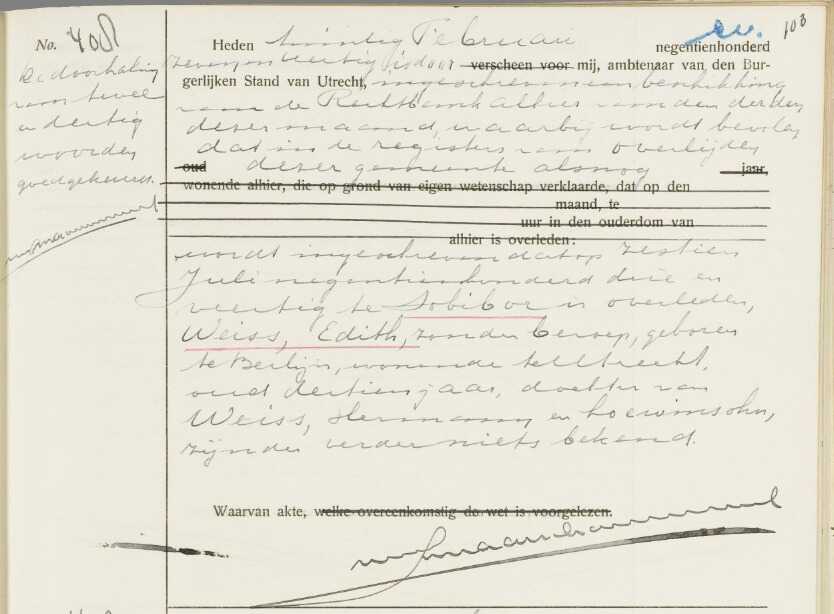 ev. 103
No. 408
Heden twintig Februari negentienhonderd
zevenenveertig is door verscheen voor mij, ambtenaar van den Bur-
gerlijken Stand van Utrecht, ingeschreven een beschikking
van de Rechtbank alhier van den derden
dezer maand, waarbij wordt bevolen
dat in de registers van overlijden
oud dezer gemeente alsnog jaar,
wonende alhier, die op grond van eigen wetenschap verklaarde, dat op den
maand, te
uur in den ouderdom van
alhier is overleden:
wordt ingeschreven dat op zestien
Juli negentienhonderd drie en
veertig te Sobibor is overleden,
Weiss, Edith, zonder beroep, geboren
te Berlijn, wonende te Utrecht,
oud dertien jaar, dochter van
Weiss, Hermann en Loewinsohn,
zijnde verder niets bekend.
Waarvan akte, welke overeenkomstig de wet is voorgelezen.
De doorhaling
van twee
en dertig
woorden
goedgekeurd.